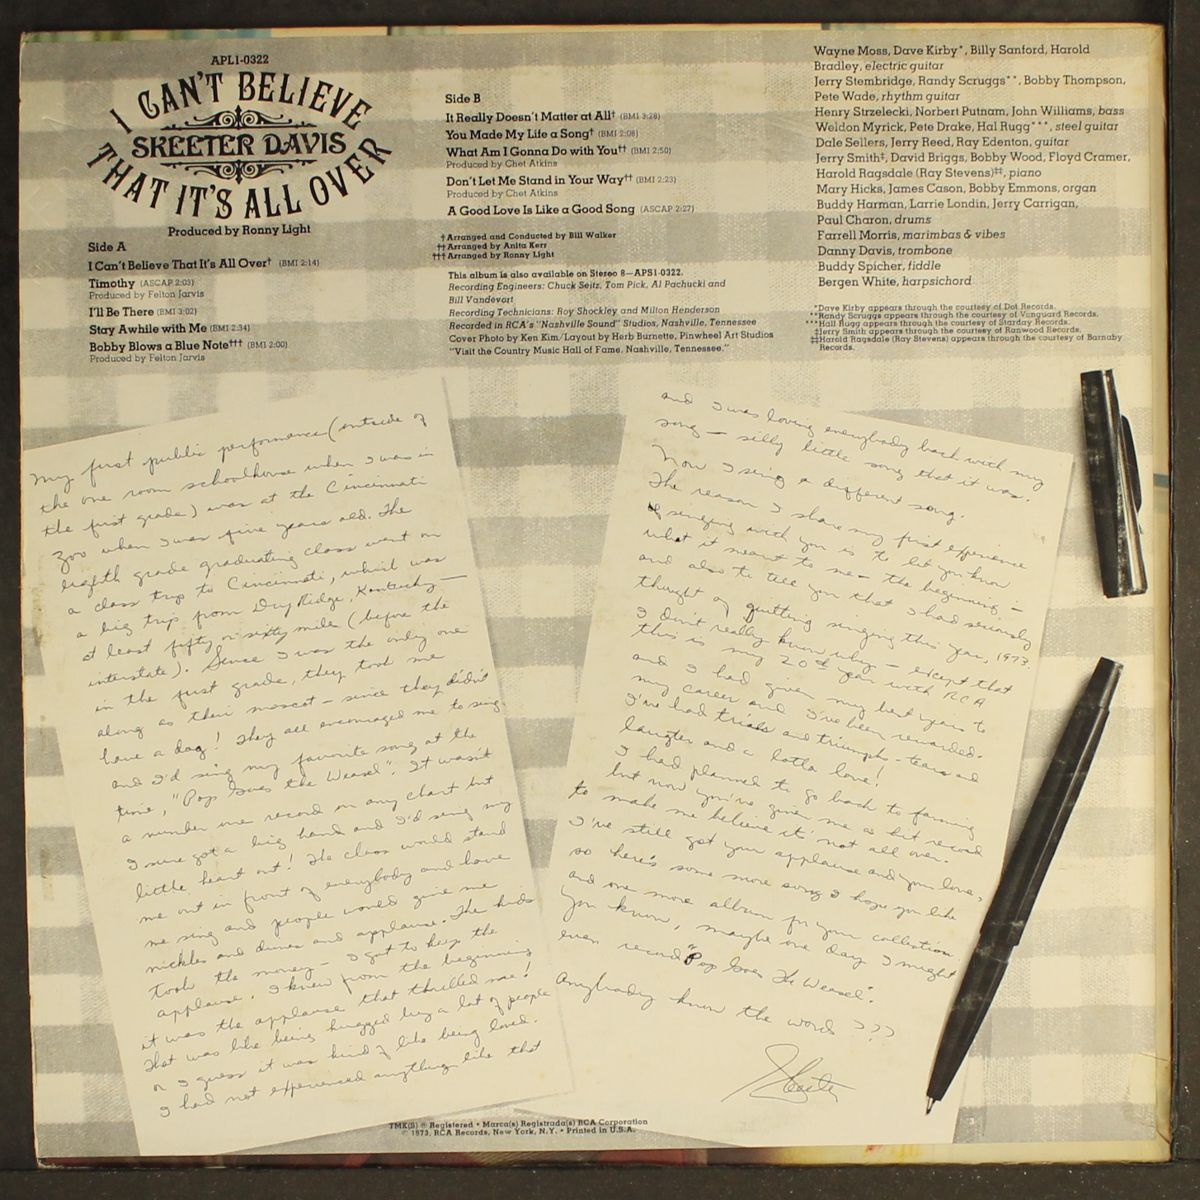 APL1-0322
I CAN'T BELIEVE
SKEETER DAVIS
THAT IT'S ALL OVER
Produced by Ronny Light
Side A
I Can't Believe That It's All Over† (BMI 2:14)
Timothy (ASCAP 2:03)
Produced by Felton Jarvis
I'll Be There (BMI 3:02)
Stay Awhile with Me (BMI 2:34)
Bobby Blows a Blue Note††† (BMI 2:00)
Produced by Felton Jarvis
Side B
It Really Doesn't Matter at All† (BMI 3:28)
You Made My Life a Song† (BMI 2:08)
What Am I Gonna Do with You†† (BMI 2:50)
Produced by Chet Atkins
Don't Let Me Stand in Your Way†† (BMI 2:23)
Produced by Chet Atkins
A Good Love Is Like a Good Song (ASCAP 2:27)
† Arranged and Conducted by Bill Walker
†† Arranged by Anita Kerr
††† Arranged by Ronny Light
This album is also available on Stereo 8—APS1-0322.
Recording Engineers: Chuck Seitz, Tom Pick, Al Pachucki and
Bill Vandevort
Recording Technicians: Roy Shockley and Milton Henderson
Recorded in RCA's "Nashville Sound" Studios, Nashville, Tennessee
Cover Photo by Ken Kim/Layout by Herb Burnette, Pinwheel Art Studios
"Visit the Country Music Hall of Fame, Nashville, Tennessee."
Wayne Moss, Dave Kirby*, Billy Sanford, Harold
Bradley, electric guitar
Jerry Stembridge, Randy Scruggs**, Bobby Thompson,
Pete Wade, rhythm guitar
Henry Strzelecki, Norbert Putnam, John Williams, bass
Weldon Myrick, Pete Drake, Hal Rugg***, steel guitar
Dale Sellers, Jerry Reed, Ray Edenton, guitar
Jerry Smith‡, David Briggs, Bobby Wood, Floyd Cramer,
Harold Ragsdale (Ray Stevens)‡‡, piano
Mary Hicks, James Cason, Bobby Emmons, organ
Buddy Harman, Larrie Londin, Jerry Carrigan,
Paul Charon, drums
Farrell Morris, marimbas & vibes
Danny Davis, trombone
Buddy Spicher, fiddle
Bergen White, harpsichord
*Dave Kirby appears through the courtesy of Dot Records.
**Randy Scruggs appears through the courtesy of Vanguard Records.
***Hall Rugg appears through the courtesy of Starday Records.
‡Jerry Smith appears through the courtesy of Ranwood Records.
‡‡Harold Ragsdale (Ray Stevens) appears through the courtesy of Barnaby
Records.
My first public performance (outside of
the one room schoolhouse when I was in
the first grade) was at the Cincinnati
Zoo when I was five years old. The
eighth grade graduating class went on
a class trip to Cincinnati, which was
a big trip from Dry Ridge, Kentucky —
at least fifty or sixty miles (before the
interstate). Since I was the only one
in the first grade, they took me
along as their mascot - since they didn't
have a dog! They all encouraged me to sing
and I'd sing my favorite song at the
time, "Pop Goes the Weasel". It wasn't
a number one record on any chart but
I sure got a big hand and I'd sing my
little heart out! The class would stand
me out in front of everybody and have
me sing and people would give me
nickles and dimes and applause. The kids
took the money - I got to keep the
applause. I knew from the beginning
it was the applause that thrilled me!
That was like being hugged by a lot of people
or I guess it was kind of like being loved.
I had not experienced anything like that
and I was loving everybody back with my
song — silly little song that it was.
Now I sing a different song.
The reason I share my first experience
of singing with you is to let you know
what it meant to me - the beginning —
and also to tell you that I had seriously
thought of quitting singing this year, 1973.
I don't really know why - except that
this is my 20th year with RCA
and I had given my best years to
my career and I've been rewarded.
I've had trials and triumphs - tears and
laughter and a lotta love!
I had planned to go back to farming
but now you've given me a hit record
to make me believe it's not all over.
I've still got your applause and your love,
so here's some more songs I hope you like
and one more album for your collection.
You know, maybe one day I might
even record "Pop Goes The Weasel".
Anybody know the words ???
Skeeter
TMK(S) ® Registered • Marca(s) Registrada(s) RCA Corporation
© 1973, RCA Records, New York, N.Y. • Printed in U.S.A.